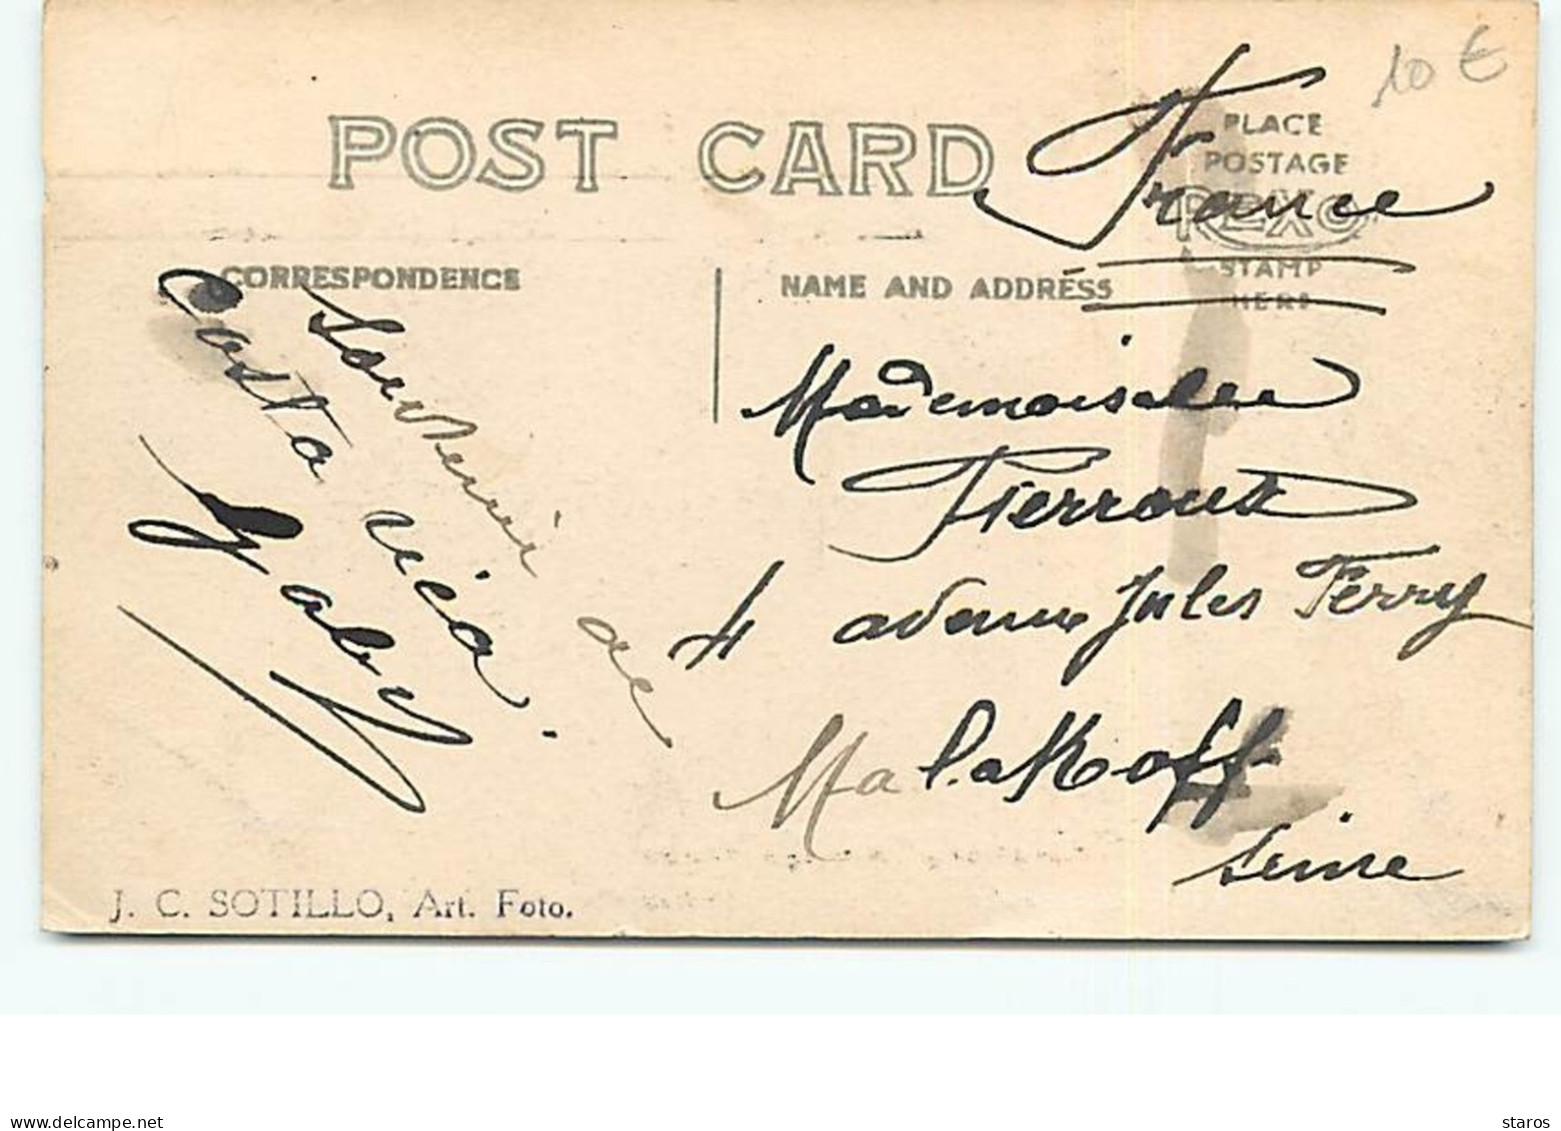 10 €
France
POST CARD
PLACE
POSTAGE
REXO
STAMP
HERE
CORRESPONDENCE
NAME AND ADDRESS
Souvenir de
Costa rica.
Gaby
Mademoiselle
Pierroux
4 avenue Jules Ferry
Malakoff
Seine
J. C. SOTILLO, Art. Foto.
delcampe.net
staros